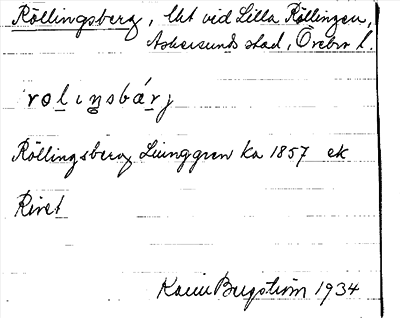 Röllingsberg, lht vid Lilla Röllingen,
Askersunds stad, Örebro l.
rolinsbárj
Röllingsberg Liunggren Ka 1857 ek
Rivet
Karin Bergström 1934